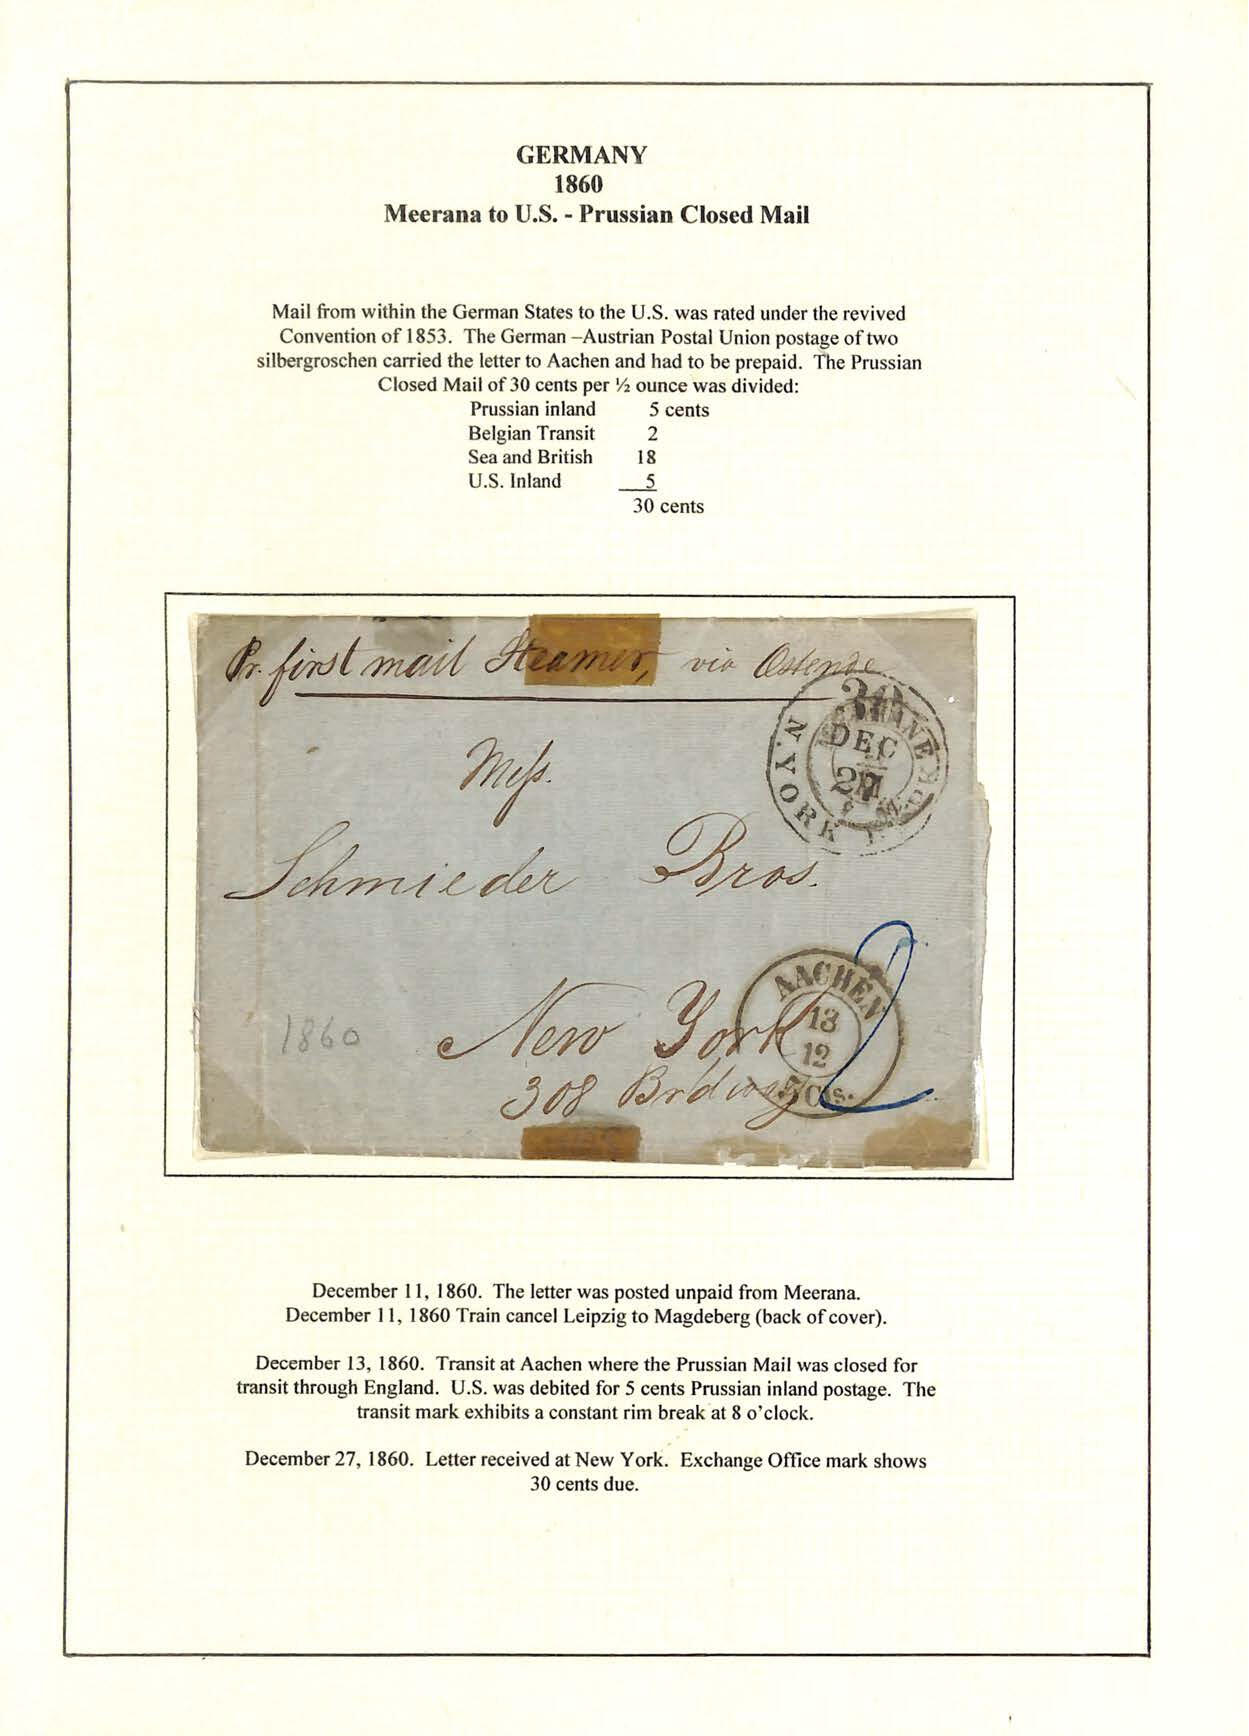 GERMANY
1860
Meerana to U.S. - Prussian Closed Mail
Mail from within the German States to the U.S. was rated under the revived
Convention of 1853. The German –Austrian Postal Union postage of two
silbergroschen carried the letter to Aachen and had to be prepaid. The Prussian
Closed Mail of 30 cents per ½ ounce was divided:
Prussian inland 5 cents
Belgian Transit 2
Sea and British 18
U.S. Inland 5
30 cents
Pr. first mail Steamer, via Ostende
30
N.YORK
DEC
27
Mess.
Schmieder Bros.
2
AACHEN
13
12
5 Cts.
New York
308 Brdway
1860
December 11, 1860. The letter was posted unpaid from Meerana.
December 11, 1860 Train cancel Leipzig to Magdeberg (back of cover).
December 13, 1860. Transit at Aachen where the Prussian Mail was closed for
transit through England. U.S. was debited for 5 cents Prussian inland postage. The
transit mark exhibits a constant rim break at 8 o'clock.
December 27, 1860. Letter received at New York. Exchange Office mark shows
30 cents due.